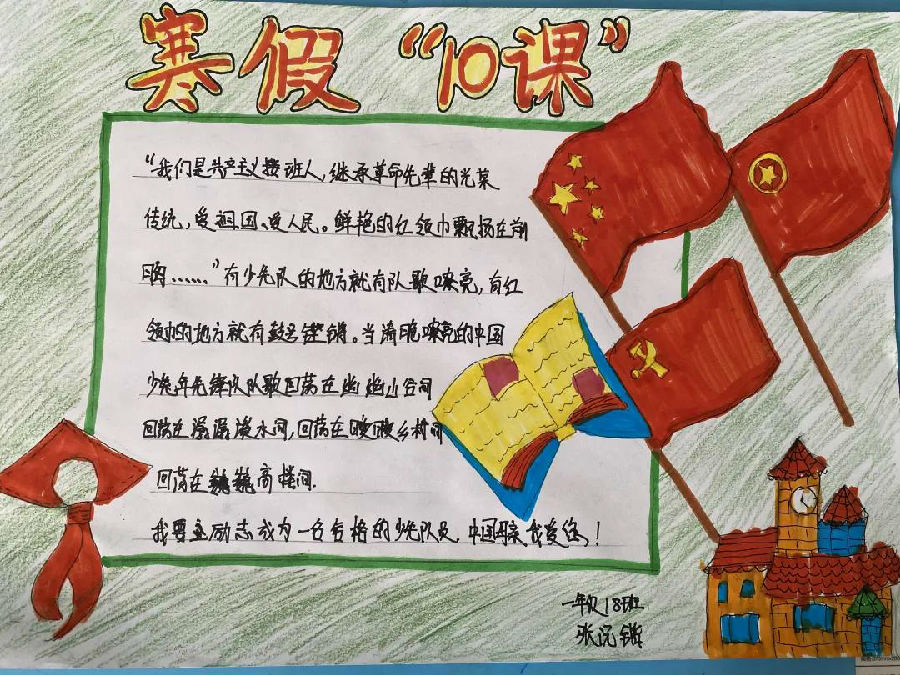 寒假“10课”
“我们是共产主义接班人,继承革命先辈的光荣
传统,爱祖国、爱人民。鲜艳的红领巾飘扬在前
胸……”有少先队的地方就有队歌嘹亮,有红
领巾的地方就有鼓号铿锵。当清晰嘹亮的中国
少年先锋队队歌回荡在幽幽山谷间
回荡在潺潺溪水间,回荡在暧暧乡村间
回荡在巍巍高楼间.
我要立励志成为一名合格的少先队员 中国队 我爱你!
一年级18班
张